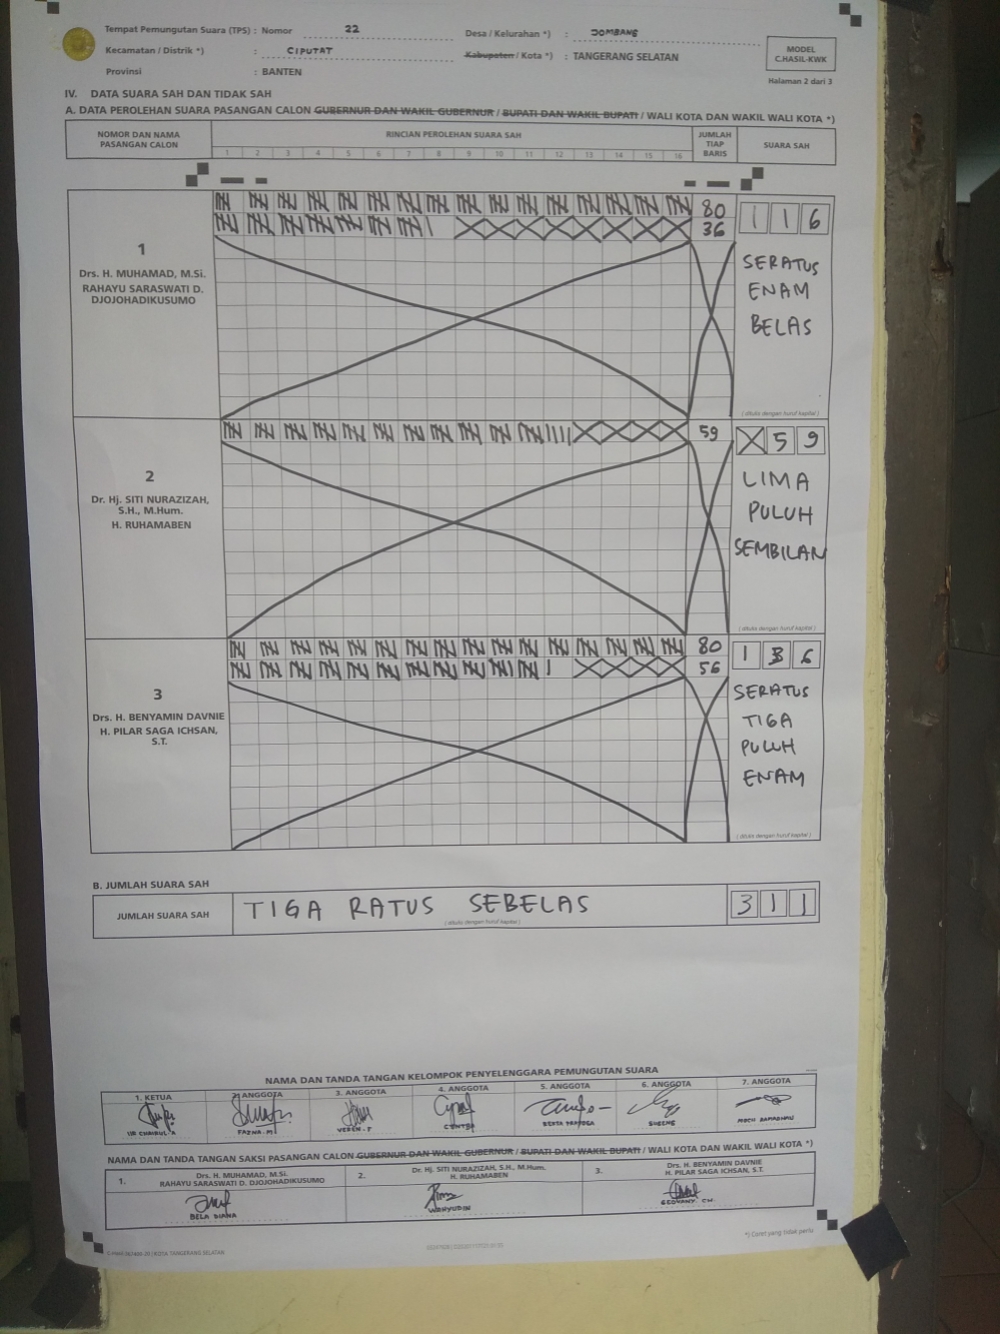 Tempat Pemungutan Suara (TPS) : Nomor 22 Desa / Kelurahan *) : JOMBANG
Kecamatan / Distrik *) : CIPUTAT Kabupaten / Kota *) : TANGERANG SELATAN
Provinsi : BANTEN
MODEL
C.HASIL-KWK
Halaman 2 dari 3
IV. DATA SUARA SAH DAN TIDAK SAH
A. DATA PEROLEHAN SUARA PASANGAN CALON GUBERNUR DAN WAKIL GUBERNUR / BUPATI DAN WAKIL BUPATI / WALI KOTA DAN WAKIL WALI KOTA *)
NOMOR DAN NAMA PASANGAN CALON
RINCIAN PEROLEHAN SUARA SAH
1 2 3 4 5 6 7 8 9 10 11 12 13 14 15 16
JUMLAH TIAP BARIS
SUARA SAH
1
Drs. H. MUHAMAD, M.Si.
RAHAYU SARASWATI D.
DJOJOHADIKUSUMO
80
36
1 1 6
SERATUS
ENAM
BELAS
( ditulis dengan huruf kapital )
2
Dr. Hj. SITI NURAZIZAH,
S.H., M.Hum.
H. RUHAMABEN
59
X 5 9
LIMA
PULUH
SEMBILAN
( ditulis dengan huruf kapital )
3
Drs. H. BENYAMIN DAVNIE
H. PILAR SAGA ICHSAN,
S.T.
80
56
1 3 6
SERATUS
TIGA
PULUH
ENAM
( ditulis dengan huruf kapital )
B. JUMLAH SUARA SAH
JUMLAH SUARA SAH TIGA RATUS SEBELAS 3 1 1
( ditulis dengan huruf kapital )
NAMA DAN TANDA TANGAN KELOMPOK PENYELENGGARA PEMUNGUTAN SUARA
1. KETUA 2. ANGGOTA 3. ANGGOTA 4. ANGGOTA 5. ANGGOTA 6. ANGGOTA 7. ANGGOTA
FAZNA.M
NAMA DAN TANDA TANGAN SAKSI PASANGAN CALON GUBERNUR DAN WAKIL GUBERNUR / BUPATI DAN WAKIL BUPATI / WALI KOTA DAN WAKIL WALI KOTA *)
1. Drs. H. MUHAMAD, M.Si.
RAHAYU SARASWATI D. DJOJOHADIKUSUMO
2. Dr. Hj. SITI NURAZIZAH, S.H., M.Hum.
H. RUHAMABEN
3. Drs. H. BENYAMIN DAVNIE
H. PILAR SAGA ICHSAN, S.T.
BELA DIANA WAHYUDIN
*) Coret yang tidak perlu